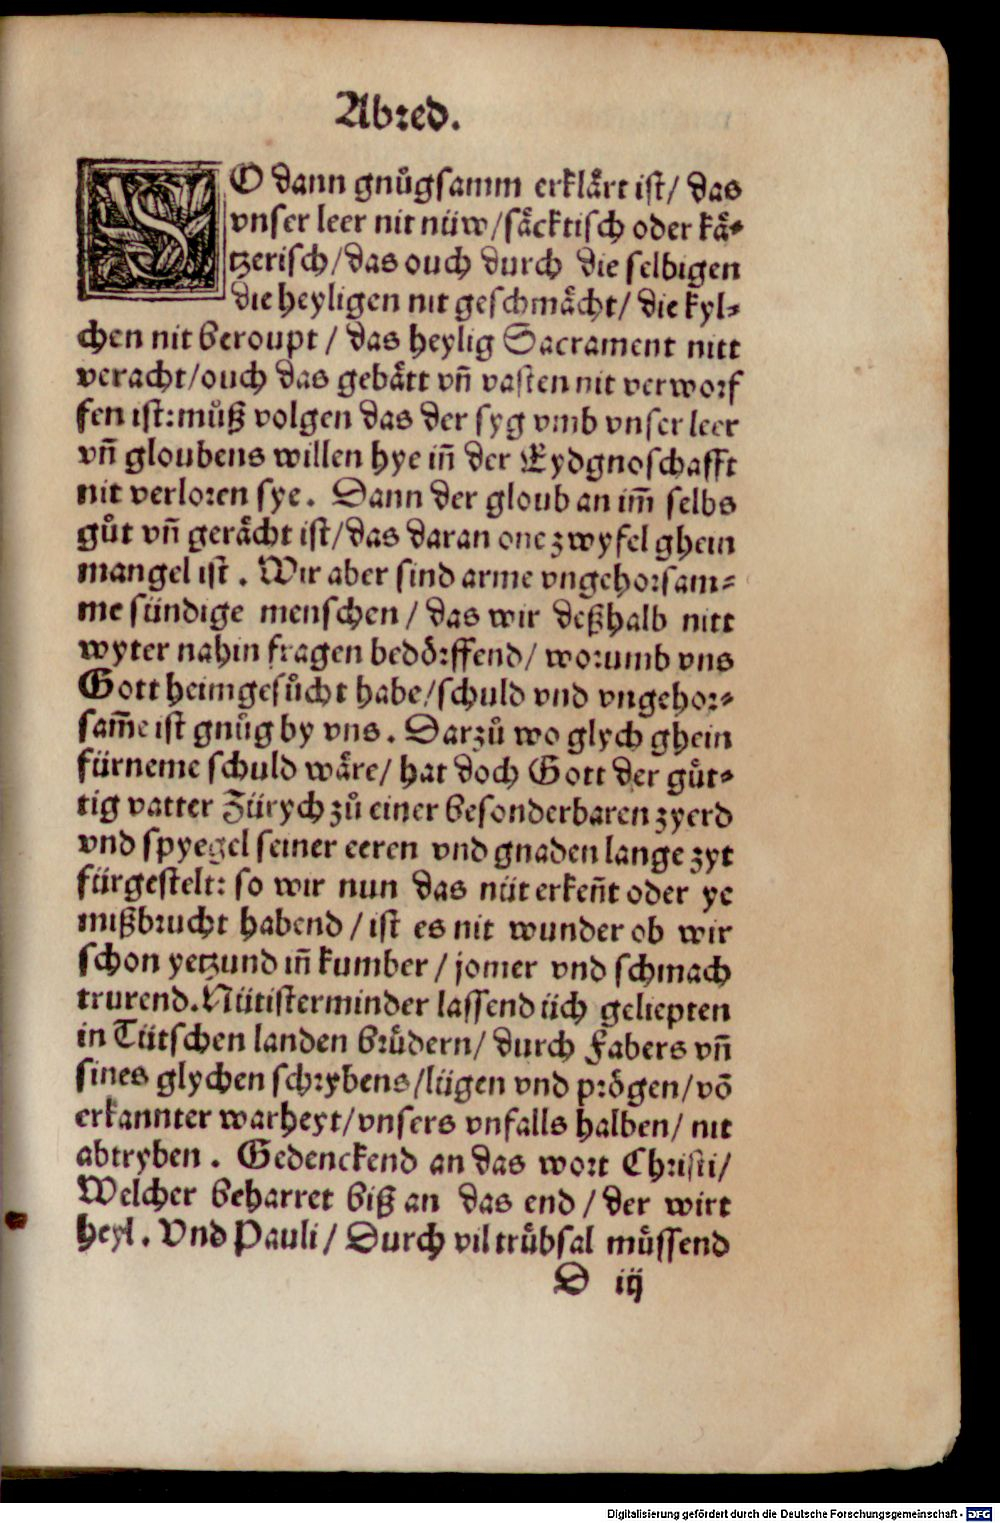 Abred.
SO dann gnůgsamm erklårt ist/ das
vnser leer nit nüw/såcktisch oder kå-
tzerisch/das ouch durch die selbigen
die heyligen nit geschmåcht/ die kyl-
chen nit beroupt / das heylig Sacrament nitt
veracht/ouch das gebått vñ vasten nit verworf
fen ist: můß volgen das der syg vmb vnser leer
vñ gloubens willen hye iñ der Eydgnoschafft
nit verloren sye. Dann der gloub an im̃ selbs
gůt vñ geråcht ist/das daran one zwyfel ghein
mangel ist. Wir aber sind arme vngehorsam-
me sündige menschen / das wir deßhalb nitt
wyter nahin fragen bedo̊rffend/ worumb vns
Gott heimgesůcht habe/schuld vnd vngehor-
sam̃e ist gnůg by vns. Darzů wo glych ghein
fürneme schuld wåre/ hat doch Gott der gůt-
tig vatter Zürych zů einer besonderbaren zyerd
vnd spyegel seiner eeren vnd gnaden lange zyt
fürgestelt: so wir nun das nüt erkeñt oder ye
mißbrucht habend / ist es nit wunder ob wir
schon yetzund iñ kumber / jomer vnd schmach
trurend. Nütisterminder lassend üch geliepten
in Tütschen landen brůdern/ durch Fabers vñ
sines glychen schrybens/lügen vnd pro̊gen/võ
erkannter warheyt/vnsers vnfalls halben/ nit
abtryben. Gedenckend an das wort Christi/
Welcher beharret biß an das end / der wirt
heyl. Vnd Pauli / Durch vil trůbsal můssend
D iij
Digitalisierung gefördert durch die Deutsche Forschungsgemeinschaft - DFG